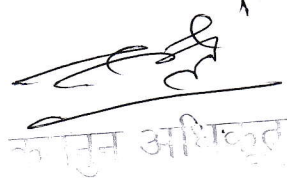 कानुन अधिकृत